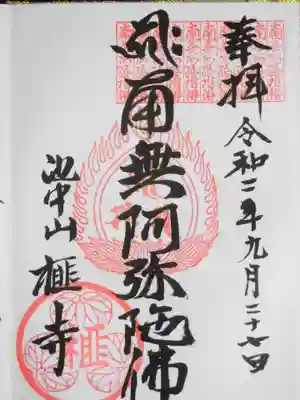 奉拝
令和二年九月二十七日
南無阿弥陀佛
池中山
榧寺
榧